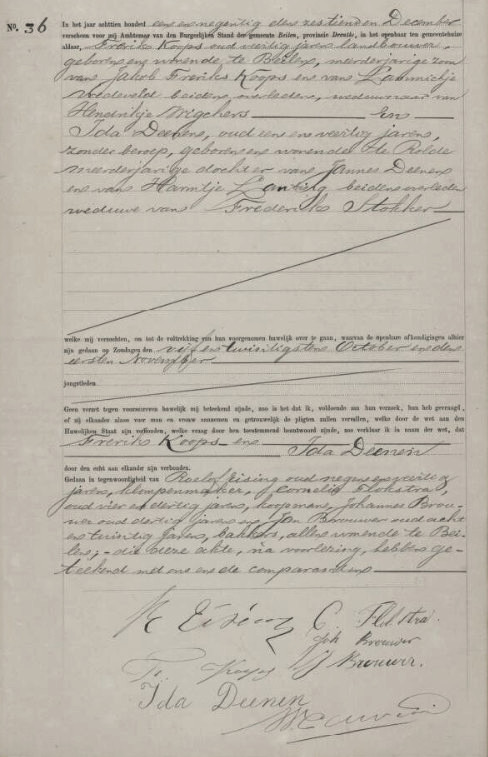 No. 36 In het jaar achttien honderd een en negentig den zestienden December
verscheen voor mij Ambtenaar van den Burgerlijken Stand der gemeente Beilen, provincie Drenthe, in het openbaar ten gemeentehuize
aldaar, Frerik Koops oud veertig jaren landbouwer,
geboren en wonende te Beilen, meerderjarige zoon
van Jakob Freriks Koops en van Lammichje
beiden overleden, weduwnaar van
Hendrikje Wigchers En
Ida Deenen, oud een en veertig jaren,
zonder beroep, geboren en wonende te Rolde
meerderjarige dochter van Jannes Deenen
en van Harmtje Lanting beiden overleden
weduwe van Frederik Stokker
welke mij verzochten, om tot de voltrekking van hun voorgenomen huwelijk over te gaan, waarvan de openbare afkondigingen alhier
zijn gedaan op Zondagen den vijf en twintigsten October en den
eersten November
jongstleden.
Geen verzet tegen voorschreven huwelijk mij beteekend zijnde, zoo is het dat ik, voldoende aan hun verzoek, hun heb gevraagd,
of zij elkander aannemen tot man en vrouw en getrouwelijk de pligten zullen vervullen, welke door de wet aan den
Huwelijken Staat zijn verbonden, welke vraag door hen toestemmend beantwoord zijnde, zoo verklaar ik in naam der wet, dat
Frerik Koops en
Ida Deenen
door den echt aan elkander zijn verbonden.
Gedaan in tegenwoordigheid van Roelof Eising oud negen en veertig
jaren, klompenmaker, Cornelis Flokstra,
oud vier en dertig jaren, koopman, Johannes Brou-
wer oud dertig jaren en Jan Brouwer oud acht
en twintig jaren, bakkers, allen wonende te Bei-
len; die deze akte, na voorlezing, hebben ge-
teekend met ons en de comparanten
R Eising C. Flokstra
Joh Brouwer
Fr. Koops J Brouwer.
Ida Deenen